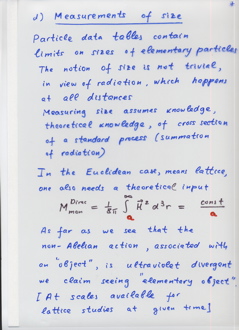 d) Measurements of size
Particle data tables contain
limits on sizes of elementary particles
The notion of size is not trivial,
in view of radiation, which happens
at all distances
Measuring size assumes knowledge,
theoretical knowledge, of cross section
of a standard process (summation
of radiation)
In the Euclidean case, means lattice,
one also needs a theoretical input
M^{Dirac}_{mon} = 1/8π ∫_a^∞ H⃗² d³r = const/a
As far as we see that the
non-Abelian action, associated with
an "object", is ultraviolet divergent
we claim seeing "elementary object".
[At scales available for
lattice studies at given time]